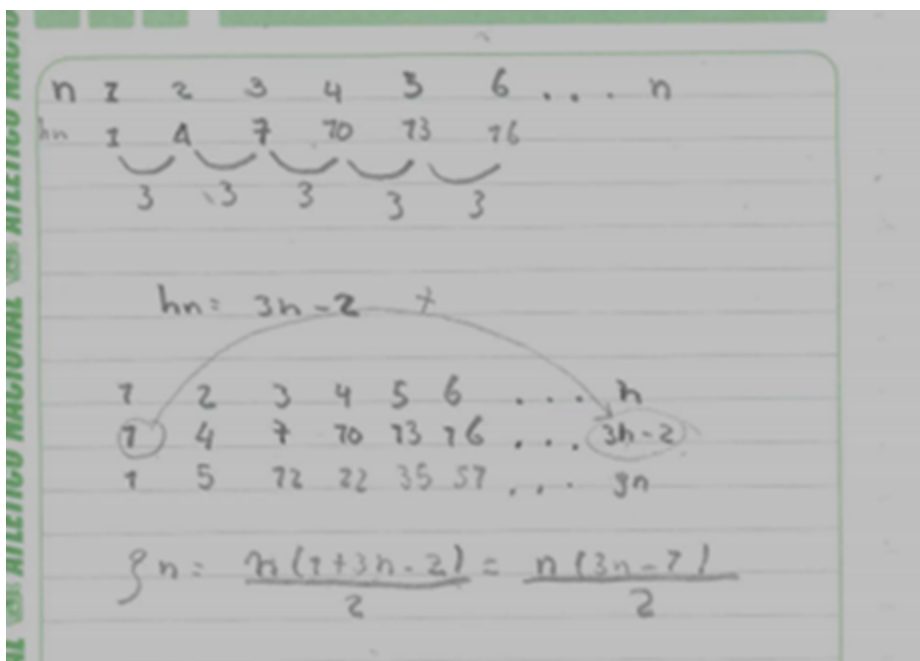 ATLETICO NACIONAL ATLETICO NACIONAL
n 1 2 3 4 5 6 .... n
hn 1 4 7 10 13 16
3 3 3 3 3
hn = 3n - 2 +
1 2 3 4 5 6 .... n
1 4 7 10 13 16 ... 3n-2
1 5 12 22 35 51 ... gn
gn = n(1+3n-2)/2 = n(3n-1)/2